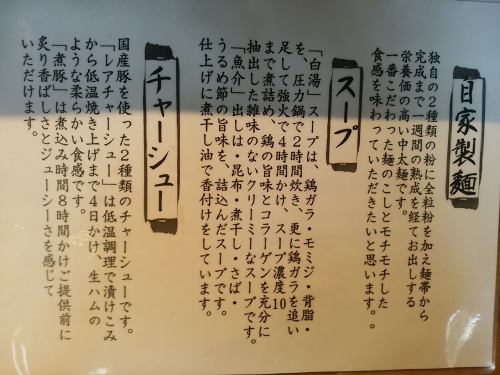 自家製麺
独自の2種類の粉に全粒粉を加え麺帯から
完成まで一週間の熟成を経てお出しする
栄養価の高い中太麺です。
一番こだわった麺のこしとモチモチした
食感を味わっていただきたいと思います。。
スープ
「白湯」スープは、鶏ガラ・モミジ・背脂・
を、圧力鍋で2時間炊き、更に鶏ガラを追い
足して強火で4時間かけ、スープ濃度10
まで煮詰め、鶏の旨味とコラーゲンを充分に
抽出した雑味のないクリーミーなスープです。
「魚介」出しは・昆布・煮干し・さば・
うるめ節の旨味を、詰込んだスープです。
仕上げに煮干し油で香付けをしています。
チャーシュー
国産豚を使った2種類のチャーシューです。
「レアチャーシュー」は低温調理で漬けこみ
から低温焼き上げまで4日かけ、生ハムの
ような柔らかい食感です。
「煮豚」は煮込み時間8時間かけご提供前に
炙り香ばしさとジューシーさを感じて
いただけます。